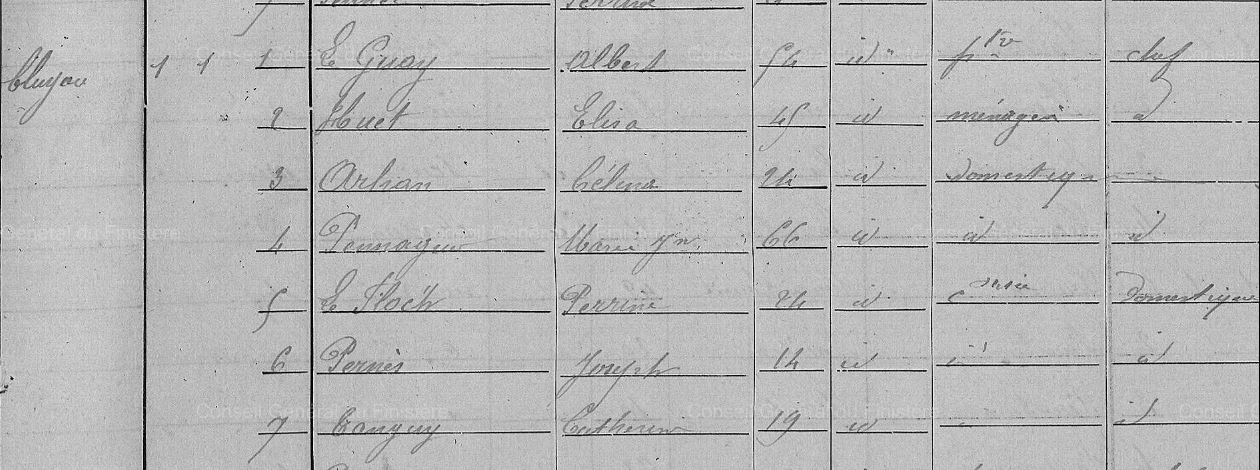 1 1 1 Le Guay Albert 54 id ptre chef
2 Huet Elisa 45 id ménagère id
3 Arhan Céline 24 id domestique
4 Pennaguer Marie Yne 66 id id id
5 Le Floc'h Perrine 24 id domestique
6 Pernès Joseph 14 id id id
7 Tanguy Catherine 19 id id
Conseil Général du Finistère